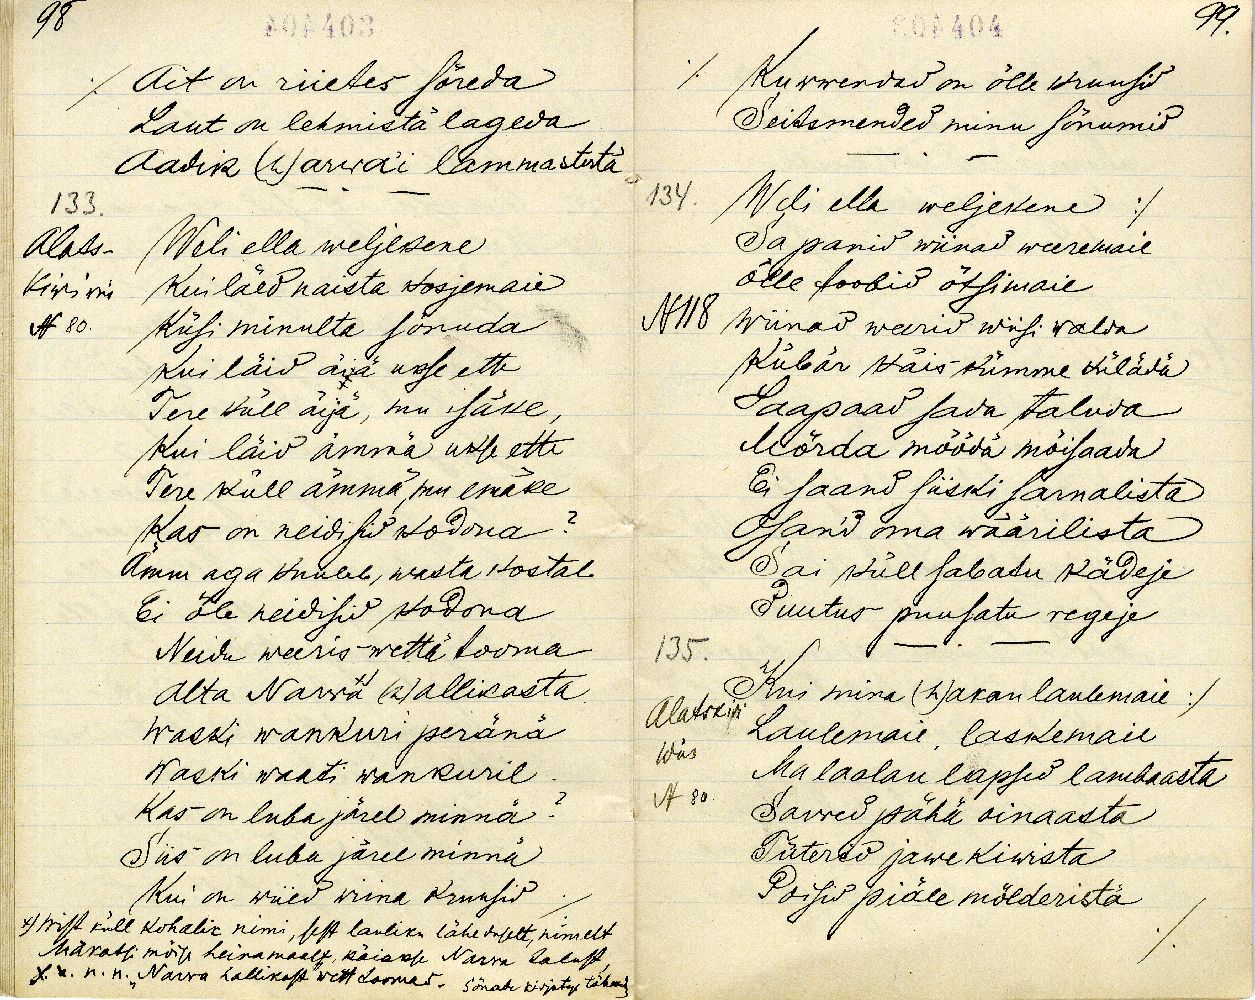 98
404403
./. Ait on riietes sõreda
Laut on lehmistä lageda
Aadik (h)arwa'i lammastesta
133.
Alats-
kiwi wiis
№ 80.
Weli ella weljekene
Kui läed naista kosjemaie
Küsi minulta sõnuda
Kui läid äijä ukse ette
Tere küll äijä, mu isäke,
Kui läid ämmä ukse ette
Tere küll ämmä, mu emäke
Kas on neidisid kodona?
Ämm aga kuuleb, wasta kostab
Ei õle neidisid kodona
Neidu weeris wettä tooma
Alta Narwä x) (h)allikasta
Waski wankuri peränä
Waski waati wankuril.
Kas on luba järel minnä?
Siis on luba järel minnä
Kui on wiied wiina kruusid ./.
x) Wist küll kohalik nimi, sest lauliku lähedusest, nimelt
mõisa heinamaalt, käiakse Narwa talust,
n. n. „Narwa hallikast" wett toomas.
99.
404404
./. Kuwwendad on õlle kruusid
Seitsmended minu sõnumid
134.
Weli ella weljekene :/
Sa panid wiinad weeremaie
õlle toobid õtsimaie
№ 118
Wiinad weerid wiisi walda
Kübär käis kümme külädä
Saapaad sada taluda
Mõrda möödä mõisaada
Ei saand siiski sarnalista
Osand oma wäärilista
Sai küll sabatu kädeje
Puutus puusatu regeje
135.
Alatskiwi
Wiis
№ 80.
Kui mina (h)akan laulemaie :/
Laulemaie, laskemaie
Ma laolan lapsed lambaasta
Sarred pähä oinaasta
Tütered jawe kiwista
Poisid piäle mölderistä
./.